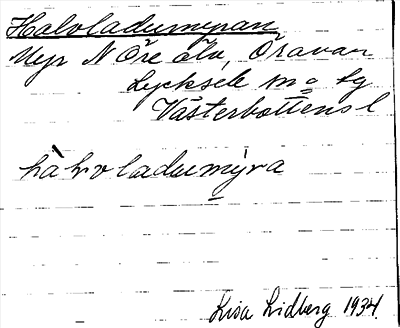 Halvladumyran
Myr N Öre älv, Öravan
Lycksele sn o lg
Västerbottens l
hàhvladumy̌ra
Lisa Lidberg 1934.